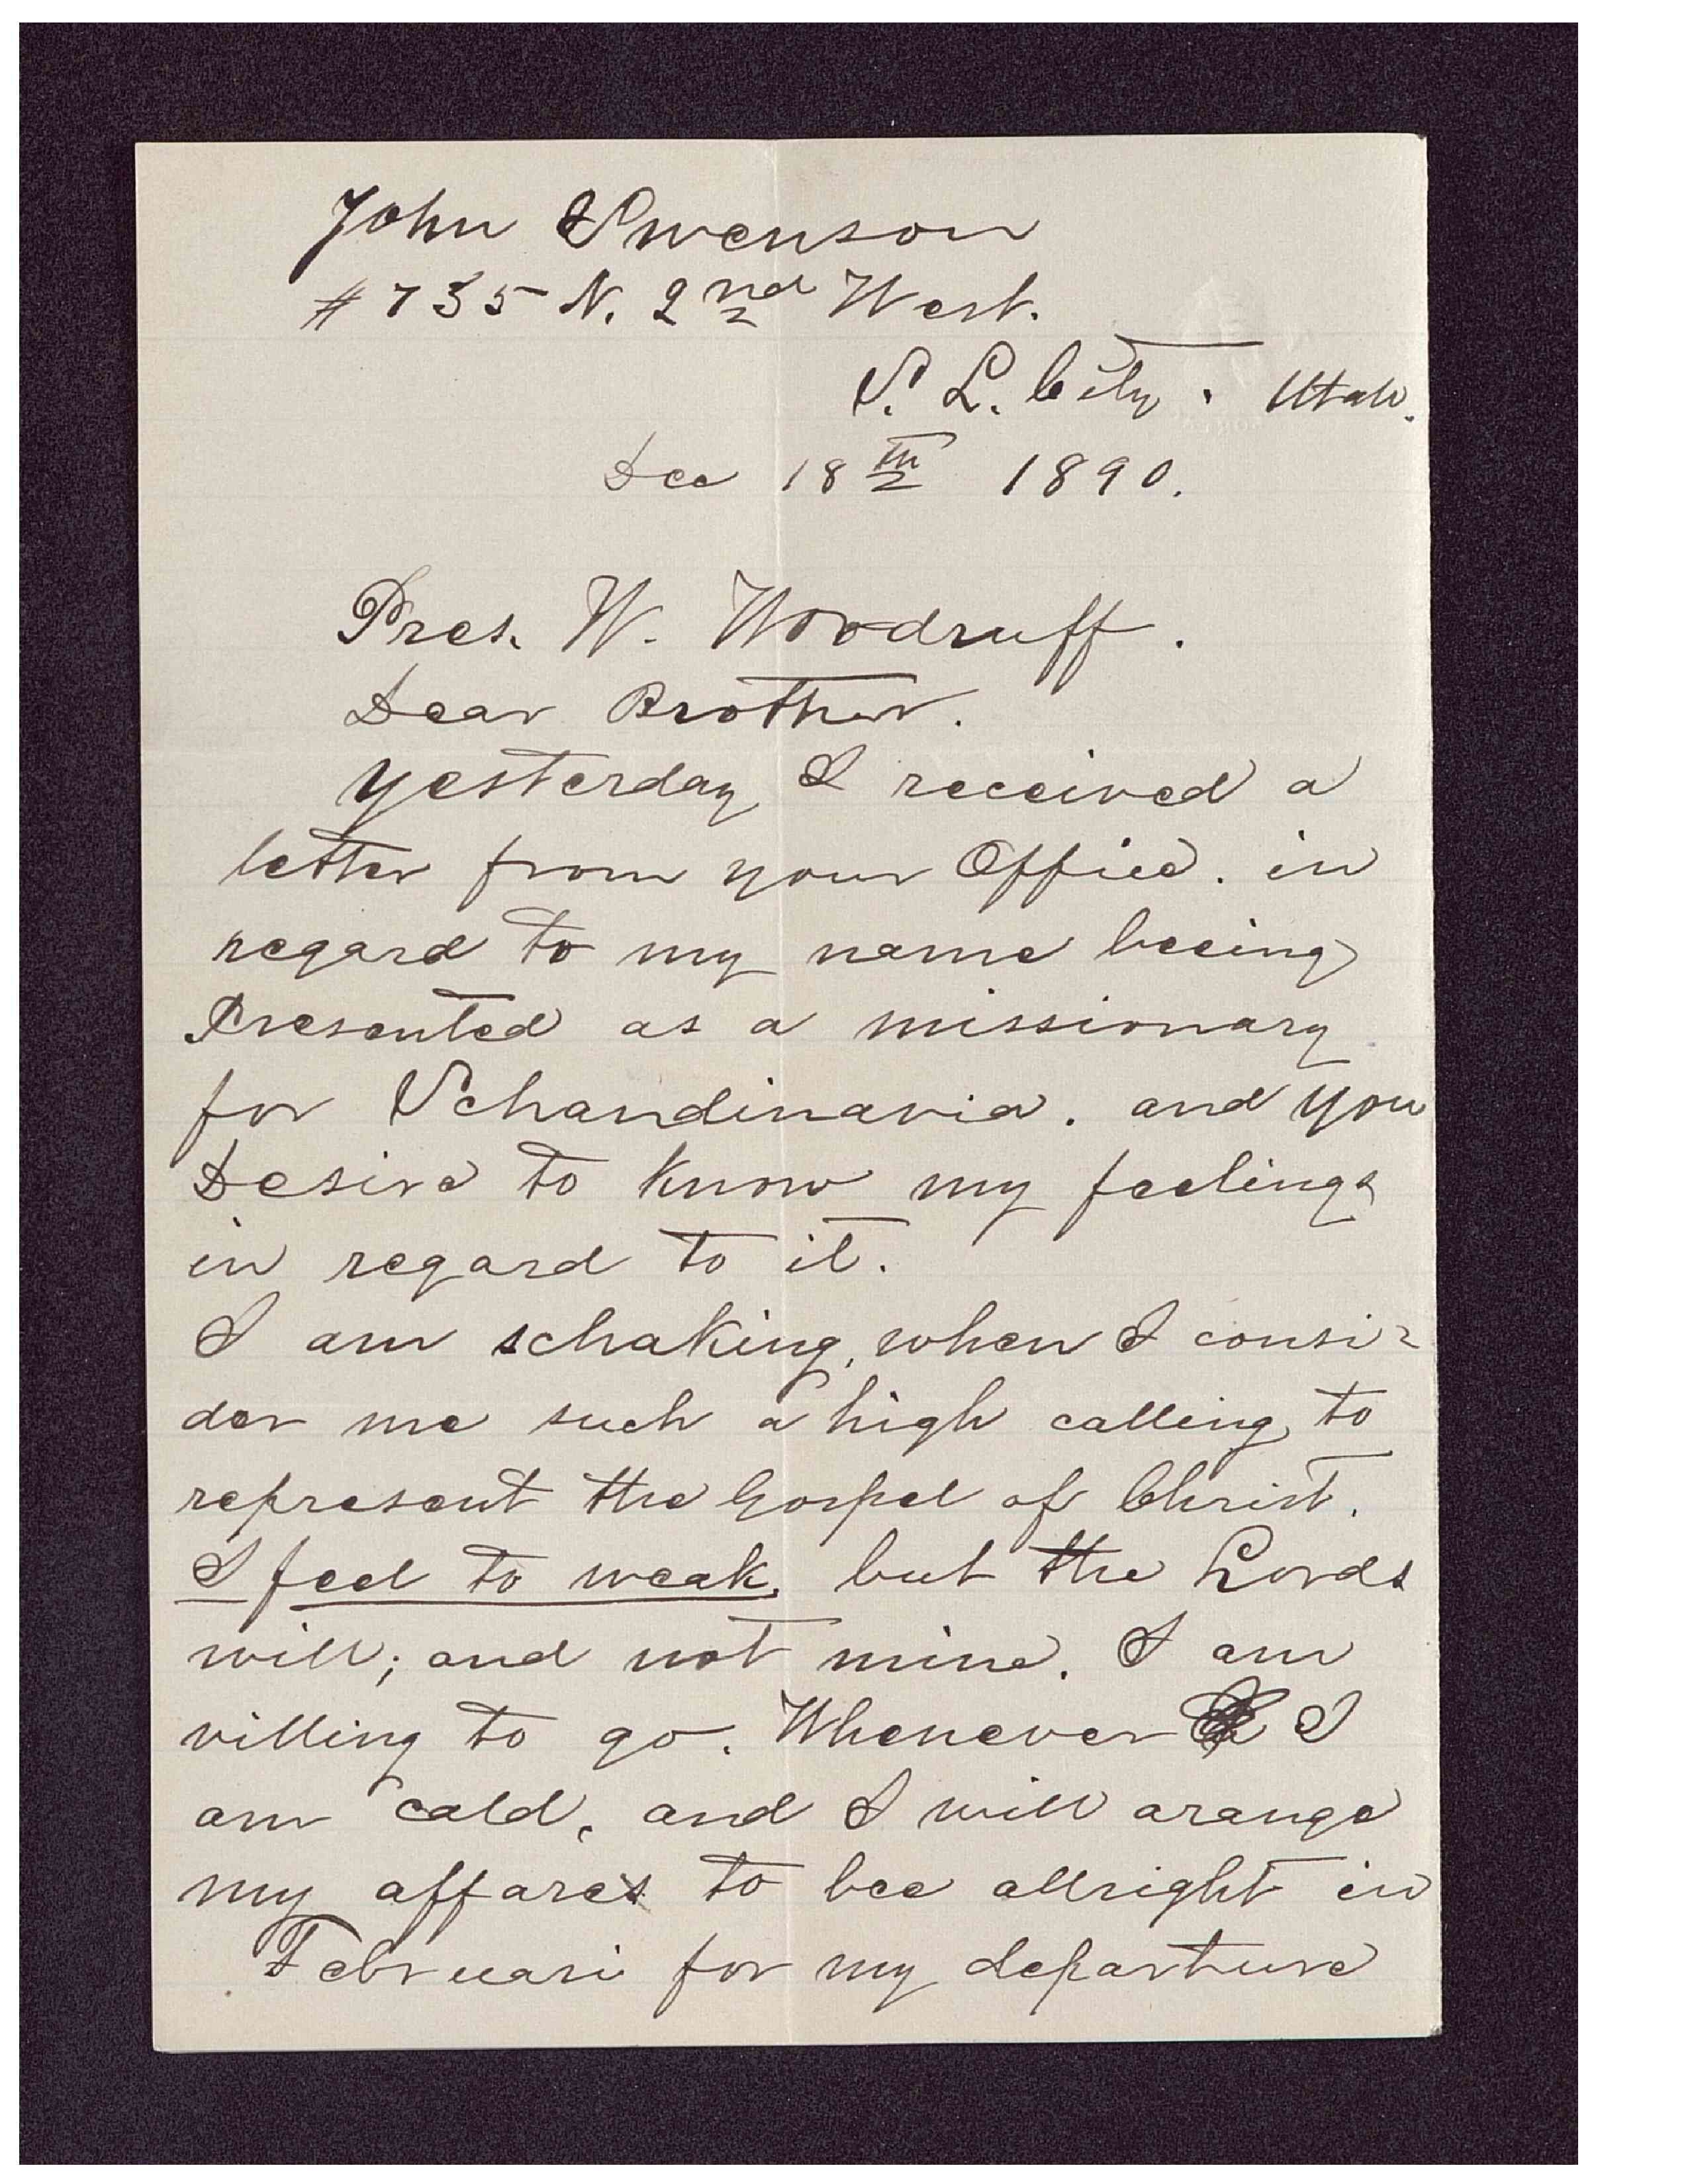 John Swenson
# 735 N. 2nd West.
S. L. City. Utah.
Dec 18th 1890.
Pres. W. Woodruff.
Dear Brother.
Yesterday I received a
letter from your Office. in
regard to my name beeing
Presented as a missionary
for Schandinavia. and you
Desire to know my feelings
in regard to it.
I am schaking, when I consi-
der me such a high calling, to
represent the Gospel of Christ.
I feel to weak, but the Lords
will; and not mine. I am
villing to go. Whenever I
am cald, and I will arange
my affares to bee allright in
Februari for my departure